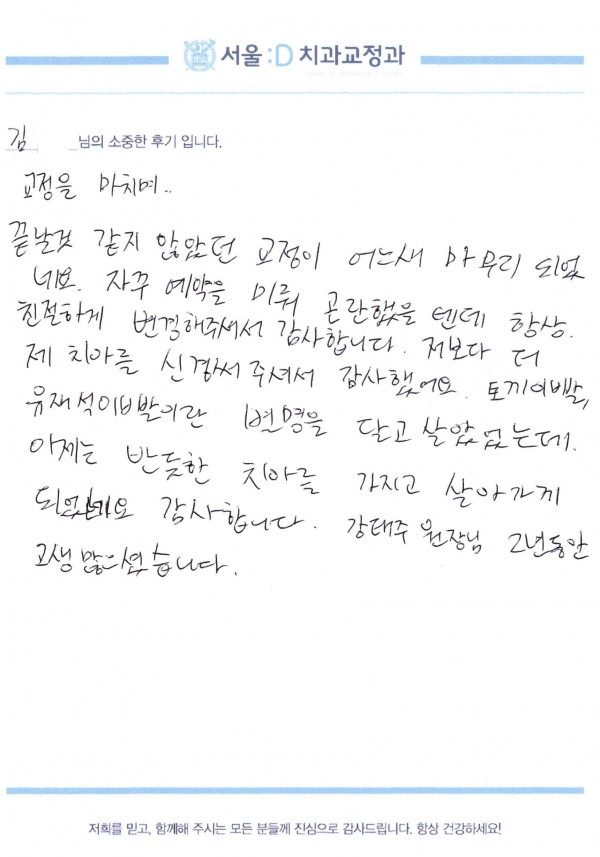 서울:D 치과교정과
김 님의 소중한 후기 입니다.
교정을 마치며..
끝날것 같지 않았던 교정이 어느새 마무리 되었
네요. 자꾸 예약을 미뤄 곤란했을 텐데 항상.
친절하게 변경해주셔서 감사합니다. 저보다 더
제 치아를 신경써 주셔서 감사했어요. 토끼이빨,
유재석이빨이란 별명을 달고 살았었는데.
이제는 반듯한 치아를 가지고 살아가게
되었네요 감사합니다. 강태주 원장님 2년동안
고생 많으셨습니다.
저희를 믿고, 함께해 주시는 모든 분들께 진심으로 감사드립니다. 항상 건강하세요!